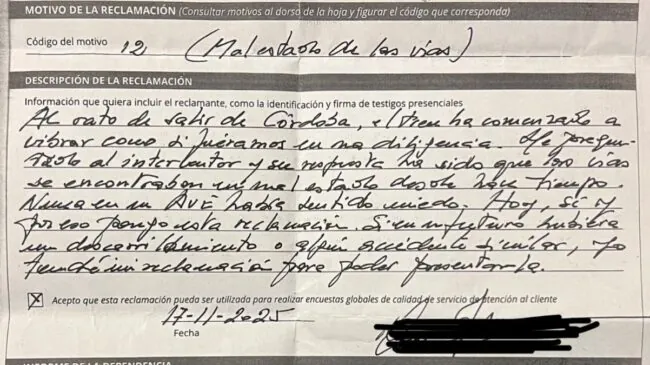 MOTIVO DE LA RECLAMACIÓN (Consultar motivos al dorso de la hoja y figurar el código que corresponda)
Código del motivo 12 (Mal estado de las vías)
DESCRIPCIÓN DE LA RECLAMACIÓN
Información que quiera incluir el reclamante, como la identificación y firma de testigos presenciales
Al rato de salir de Córdoba, el tren ha comenzado a
vibrar como si fuéramos en una diligencia. He pregun-
tado al interventor y su respuesta ha sido que las vías
se encontraban en mal estado desde hace tiempo.
Nunca en un AVE había sentido miedo. Hoy, sí y
por eso pongo esta reclamación. Si en un futuro hubiera
un descarrilamiento o algún accidente similar, yo
tendré mi reclamación para poder presentarla.
Acepto que esta reclamación pueda ser utilizada para realizar encuestas globales de calidad de servicio de atención al cliente
17-11-2025
Fecha
INFORME DE LA DEPENDENCIA